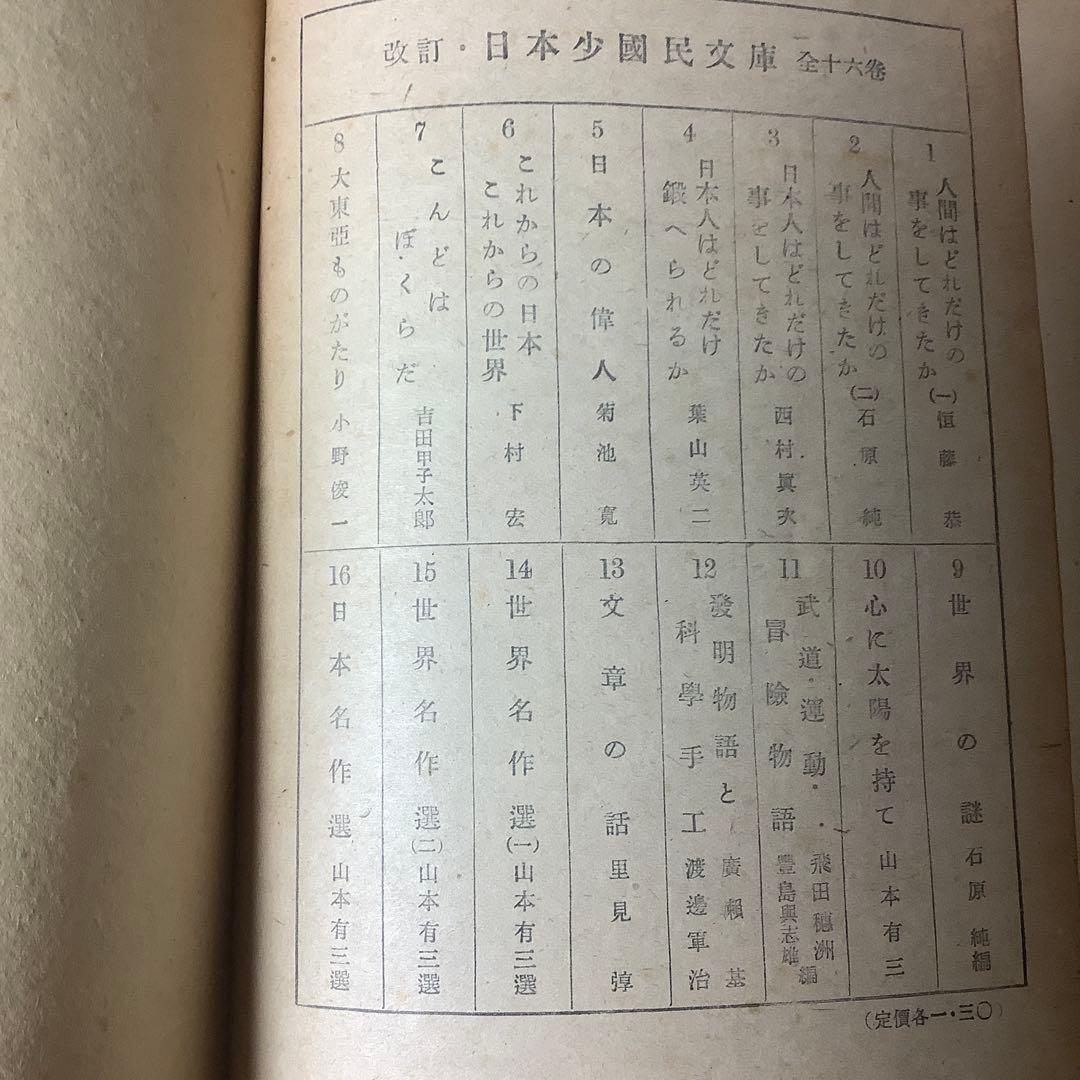 改訂・日本少國民文庫 全十六卷
1 人間はどれだけの
事をしてきたか(一) 恒藤恭
2 人間はどれだけの
事をしてきたか(二) 石原純
3 日本人はどれだけの
事をしてきたか 西村眞次
4 日本人はどれだけ
鍛へられるか 葉山英二
5 日本の偉人 菊池寬
6 これからの日本
これからの世界 下村宏
7 こんどは
ぼくらだ 吉田甲子太郎
8 大東亞ものがたり 小野俊一
9 世界の謎 石原純編
10 心に太陽を持て 山本有三
11 武道・運動・
冒險物語 飛田穗洲
豐島與志雄 編
12 發明物語と
科學手工 廣瀨基
渡邊軍治
13 文章の話 里見弴
14 世界名作選(一) 山本有三選
15 世界名作選(二) 山本有三選
16 日本名作選 山本有三選
(定價各一・三〇)